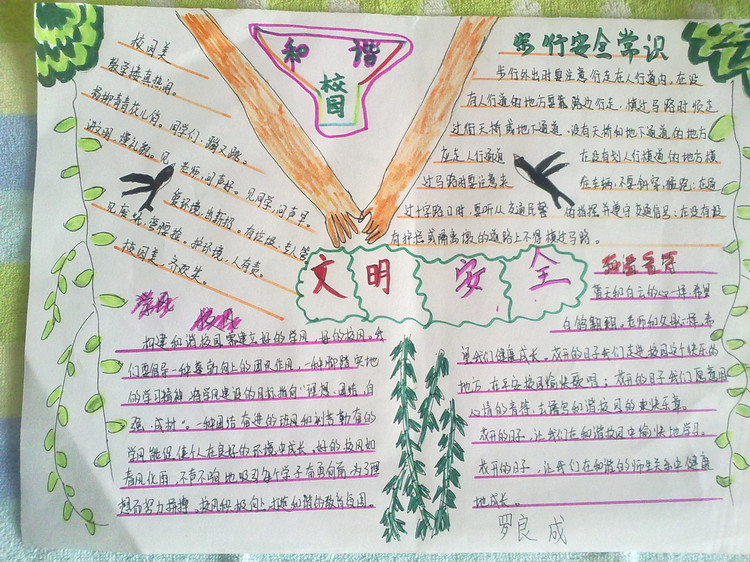 和谐
校园
校园美
教室楼真热闹。
柳绿青青花儿俏。同学们，蹦又跳。
进校园，懂礼貌。见老师，问声好。见同学，问声早
美环境，出新招。有垃圾，专人管
护环境，人有责。
校园美，齐欢笑。
步行安全常识
步行外出时要注意，行走在人行道内，在没
有人行道的地方要靠路边行走，横过马路时须走
过街天桥或地下通道，没有天桥和地下通道的地方
应走人行横道 在没有划人行横道的地方横
过马路时要注意来 往车辆，不要斜穿、猛跑；在通
过十字路口时，要听从交通民警 的指挥并遵守交通信号；在没有设
有护栏或隔离墩的道路上不得横过马路。
文明安全
学风 校风
构建和谐校园需建立好的学风，好的校风。我
们要倡导一种蓬勃向上的团队作风，一种脚踏实地
的学习精神，将学风建设的目标指向“理想、团结、自
强、成材”。一种团结奋进的政风和刻苦勤奋的
学风能促使个人在良好的环境中成长，好的校风如
春风化雨，不声不响地吸引每个学子奋勇向前，为了理
想而努力拼搏。校风积极向上，打造和谐的教育校园。
蓝天和白云的心一样，希望
白鸽翩翩。老师和父母一样，希
望我们健康成长。花开的日子我们走进校园这个快乐的
地方，在平安校园给快歌唱；花开的日子我们愿意用
心情的音符，去谱写和谐校园的更快乐章。
花开的日子，让我们在和谐校园中愉快地学习。
花开的日子，让我们在和谐的师生关系中健康
地成长。
罗良成